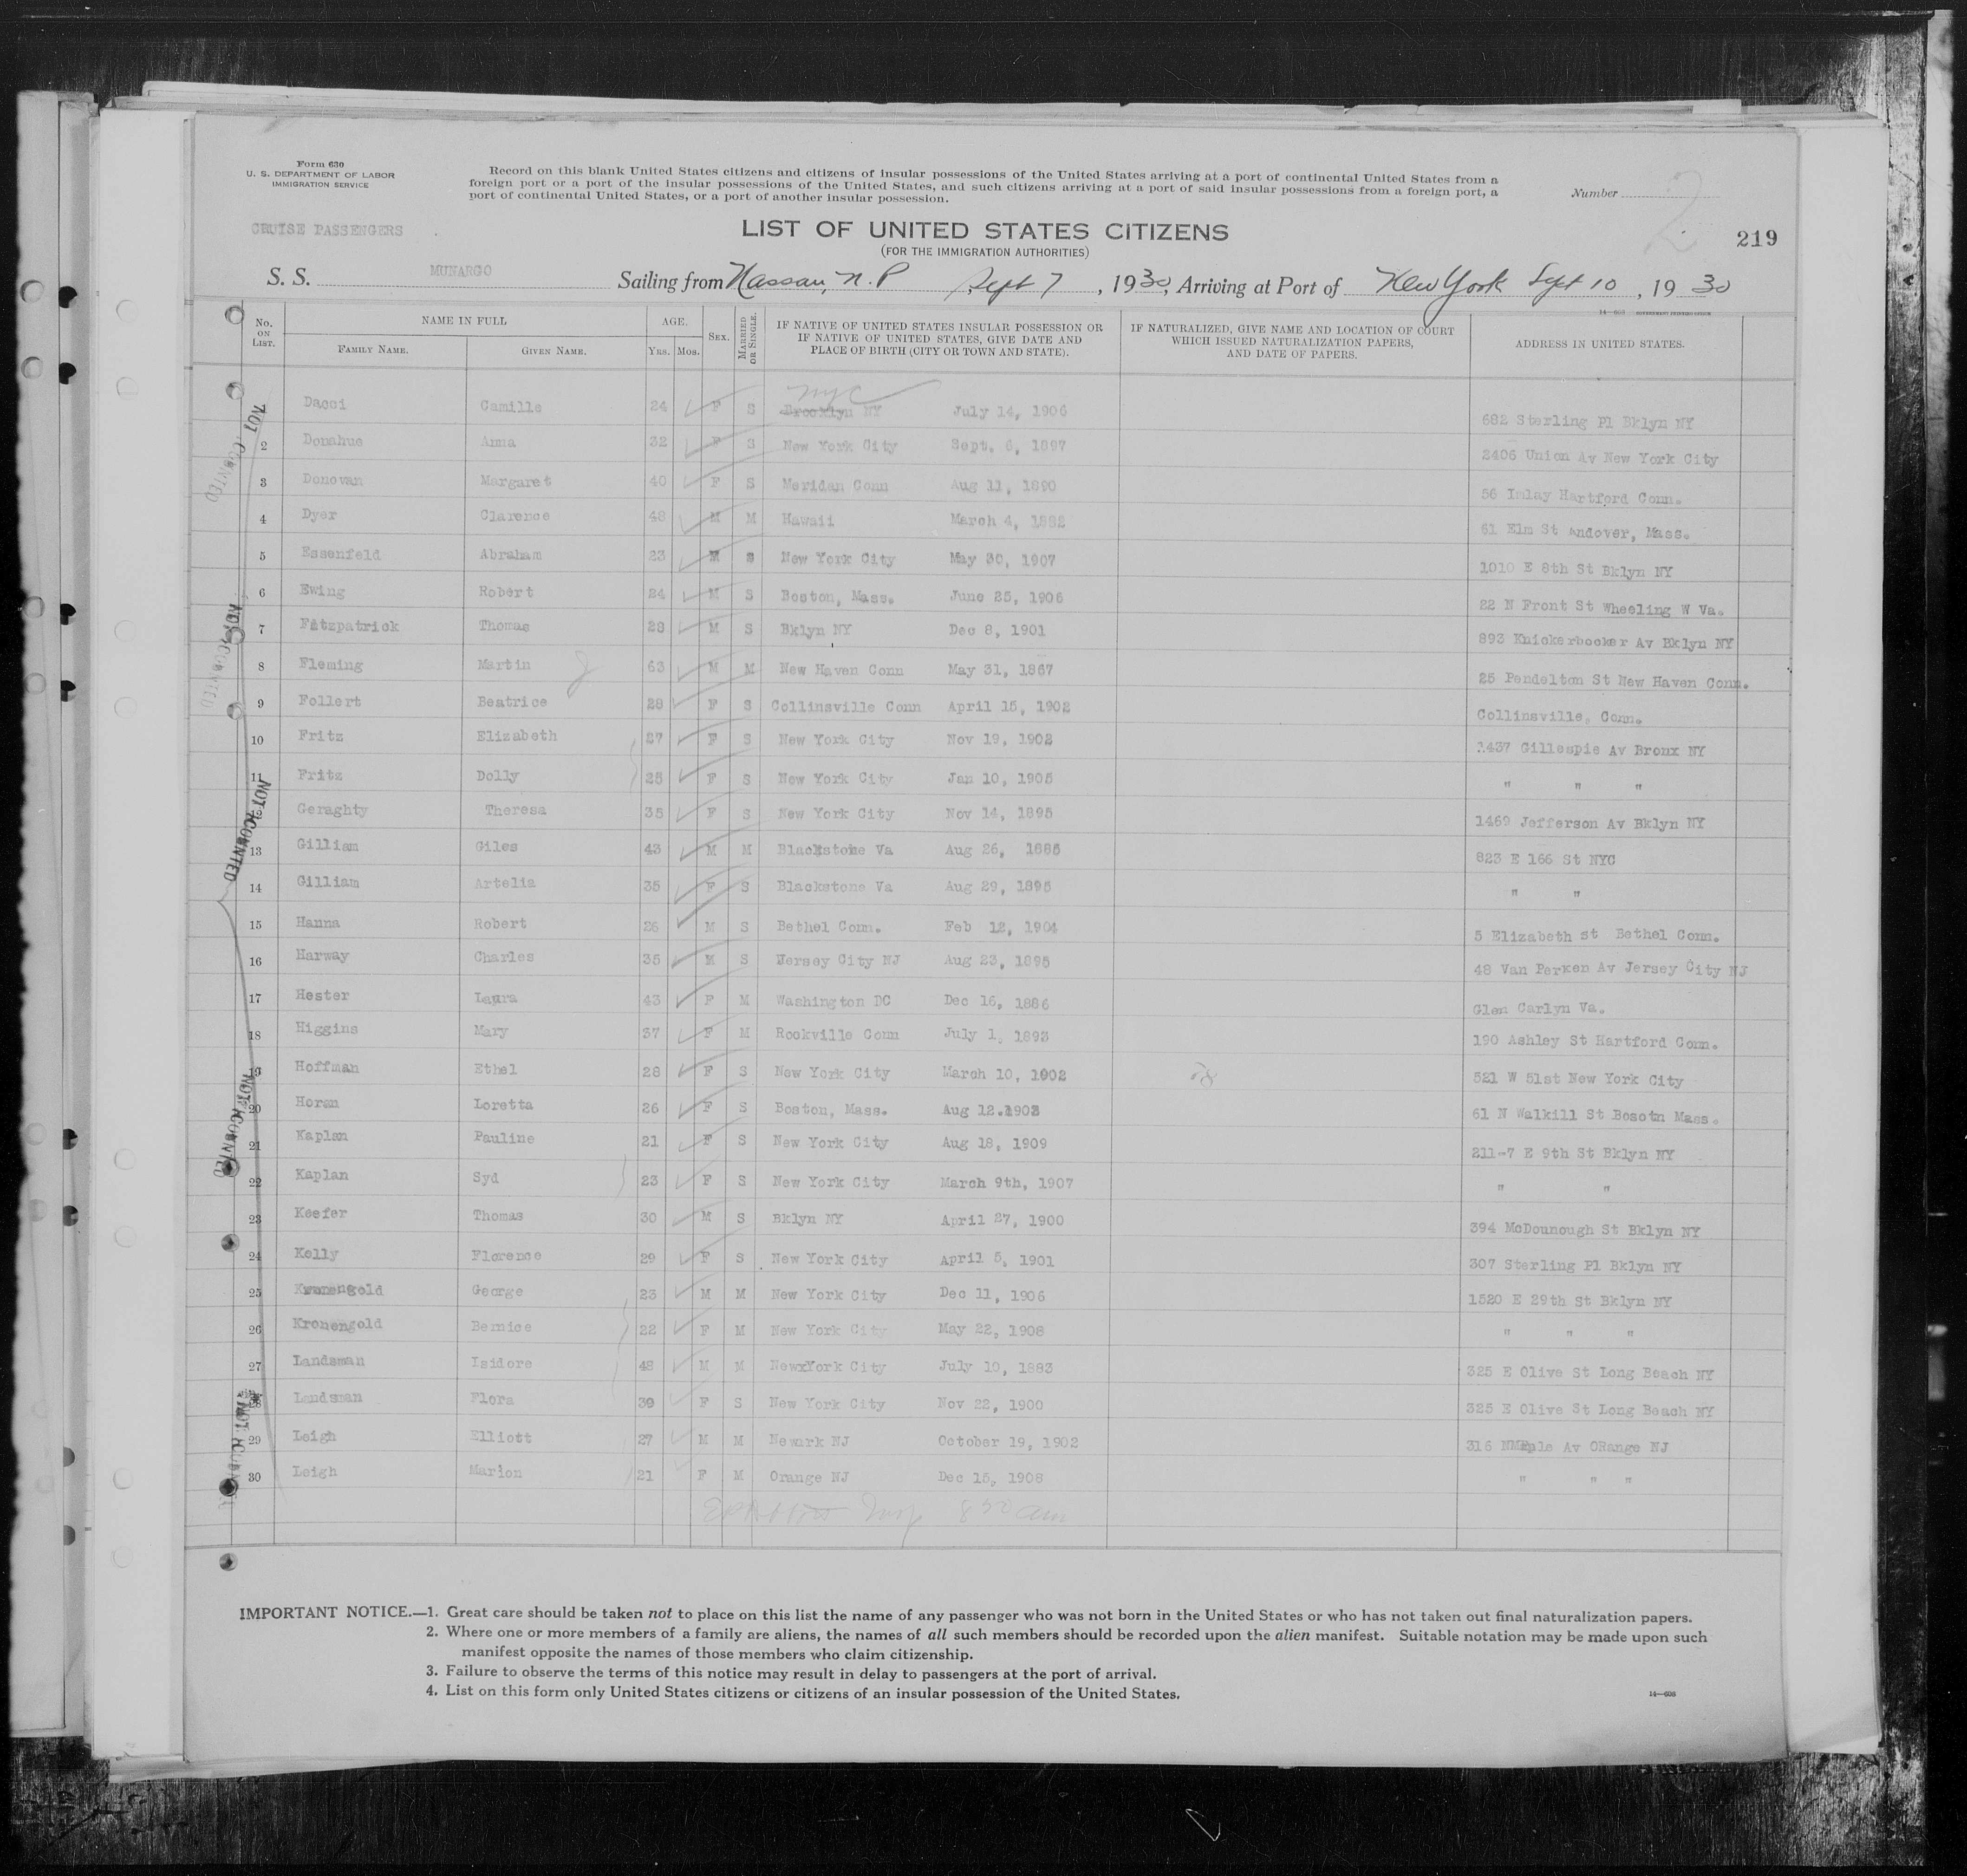 Form 630
U. S. DEPARTMENT OF LABOR
IMMIGRATION SERVICE
Record on this blank United States citizens and citizens of insular possessions of the United States arriving at a port of continental United States from a
foreign port or a port of the insular possessions of the United States, and such citizens arriving at a port of said insular possessions from a foreign port, a
port of continental United States, or a port of another insular possession.
Number 2
CRUISE PASSENGERS
LIST OF UNITED STATES CITIZENS
219
(FOR THE IMMIGRATION AUTHORITIES)
S. S. MUNARGO Sailing from Nassau, N. P Sept 7, 1930, Arriving at Port of New York Sept 10, 1930
No. ON LIST. NAME IN FULL FAMILY NAME. GIVEN NAME. AGE. YRS. MOS. SEX. MARRIED OR SINGLE. IF NATIVE OF UNITED STATES INSULAR POSSESSION OR IF NATIVE OF UNITED STATES, GIVE DATE AND PLACE OF BIRTH (CITY OR TOWN AND STATE). IF NATURALIZED, GIVE NAME AND LOCATION OF COURT WHICH ISSUED NATURALIZATION PAPERS, AND DATE OF PAPERS. ADDRESS IN UNITED STATES.
NYC
Dacci Camille 24 F S Brooklyn NY July 14, 1906 682 Sterling Pl Bklyn NY
2 Donahue Anna 32 F S New York City Sept. 6, 1897 2406 Union Av New York City
3 Donovan Margaret 40 F S Meridan Conn Aug 11, 1890 56 Imlay Hartford Conn.
4 Dyer Clarence 48 M M Hawaii March 4, 1882 61 Elm St Andover, Mass.
5 Essenfeld Abraham 23 M S New York City May 30, 1907 1010 E 8th St Bklyn NY
6 Ewing Robert 24 M S Boston, Mass. June 25, 1906 22 N Front St Wheeling W Va.
7 Fitzpatrick Thomas 28 M S Bklyn NY Dec 8, 1901 893 Knickerbocker Av Bklyn NY
8 Fleming Martin 63 M M New Haven Conn May 31, 1867 25 Pendelton St New Haven Conn.
9 Follert Beatrice 28 F S Collinsville Conn April 15, 1902 Collinsville, Conn.
10 Fritz Elizabeth 27 F S New York City Nov 19, 1902 1437 Gillespie Av Bronx NY
11 Fritz Dolly 25 F S New York City Jan 10, 1905 " " "
12 Geraghty Theresa 35 F S New York City Nov 14, 1895 1469 Jefferson Av Bklyn NY
13 Gilliam Giles 43 M M Blackstone Va Aug 26, 1886 823 E 166 St NYC
14 Gilliam Artelia 35 F S Blackstone Va Aug 29, 1895 " "
15 Hanna Robert 26 M S Bethel Conn. Feb 12, 1904 5 Elizabeth St Bethel Conn.
16 Harway Charles 35 M S Jersey City NJ Aug 23, 1895 48 Van Perken Av Jersey City NJ
17 Hester Laura 43 F M Washington DC Dec 16, 1886 Glen Carlyn Va.
18 Higgins Mary 37 F M Rockville Conn July 1, 1893 190 Ashley St Hartford Conn.
19 Hoffman Ethel 28 F S New York City March 10, 1902 521 W 51st New York City
20 Horan Loretta 26 F S Boston, Mass. Aug 12.1903 61 N Walkill St Bosotn Mass.
21 Kaplan Pauline 21 F S New York City Aug 18, 1909 211-7 E 9th St Bklyn NY
22 Kaplan Syd 23 F S New York City March 9th, 1907 " "
23 Keefer Thomas 30 M S Bklyn NY April 27, 1900 394 McDounough St Bklyn NY
24 Kelly Florence 29 F S New York City April 5, 1901 307 Sterling Pl Bklyn NY
25 George 23 M M New York City Dec 11, 1906 1520 E 29th St Bklyn NY
26 Kronengold Bernice 22 F M New York City May 22, 1908 " " "
27 Landsman Isidore 48 M M NewxYork City July 10, 1883 325 E Olive St Long Beach NY
28 Landsman Flora 39 F S New York City Nov 22, 1900 325 E Olive St Long Beach NY
29 Leigh Elliott 27 M M Newark NJ October 19, 1902 316 Av ORange NJ
30 Leigh Marion 21 F M Orange NJ Dec 15, 1908 " " "
Insp 8 50 am
NOT COUNTED
NOT COUNTED
NOT COUNTED
NOT COUNTED
NOT COUNTED
IMPORTANT NOTICE.—1. Great care should be taken not to place on this list the name of any passenger who was not born in the United States or who has not taken out final naturalization papers.
2. Where one or more members of a family are aliens, the names of all such members should be recorded upon the alien manifest. Suitable notation may be made upon such
manifest opposite the names of those members who claim citizenship.
3. Failure to observe the terms of this notice may result in delay to passengers at the port of arrival.
4. List on this form only United States citizens or citizens of an insular possession of the United States.
14—608